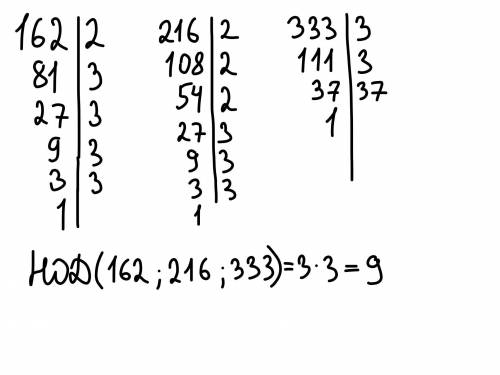 162 | 2
81 | 3
27 | 3
9 | 3
3 | 3
1
216 | 2
108 | 2
54 | 2
27 | 3
9 | 3
3 | 3
1
333 | 3
111 | 3
37 | 37
1
НОД(162 ; 216 ; 333)=3·3=9